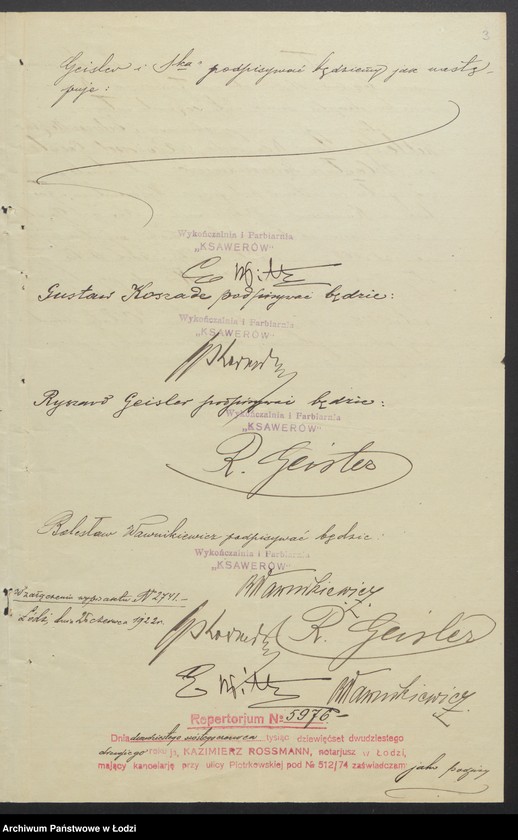 3
Geisler i Ska" podpisywać będziemy jak nastę-
puje:
Wykończalnia i Farbiarnia
„KSAWERÓW"
Gustaw Koszade podpisywać będzie:
Wykończalnia i Farbiarnia
„KSAWERÓW"
Ryszard Geisler podpisywać będzie:
Wykończalnia i Farbiarnia
„KSAWERÓW"
R. Geisler
Bolesław Wawrikiewicz podpisywać będzie:
Wykończalnia i Farbiarnia
„KSAWERÓW"
Wawrikiewicz
W załączeniu wyciąg N 2741.-
Łódź, dnia czerwca 1922 r.
R. Geisler
Wawrikiewicz
Repertorjum № 5976-
Dnia tysiąc dziewięćset dwudziestego
drugiego roku ja, KAZIMIERZ ROSSMANN, notarjusz w Łodzi,
mający kancelarję przy ulicy Piotrkowskiej pod № 512/74 zaświadczam
jako podpisy
Archiwum Państwowe w Łodzi